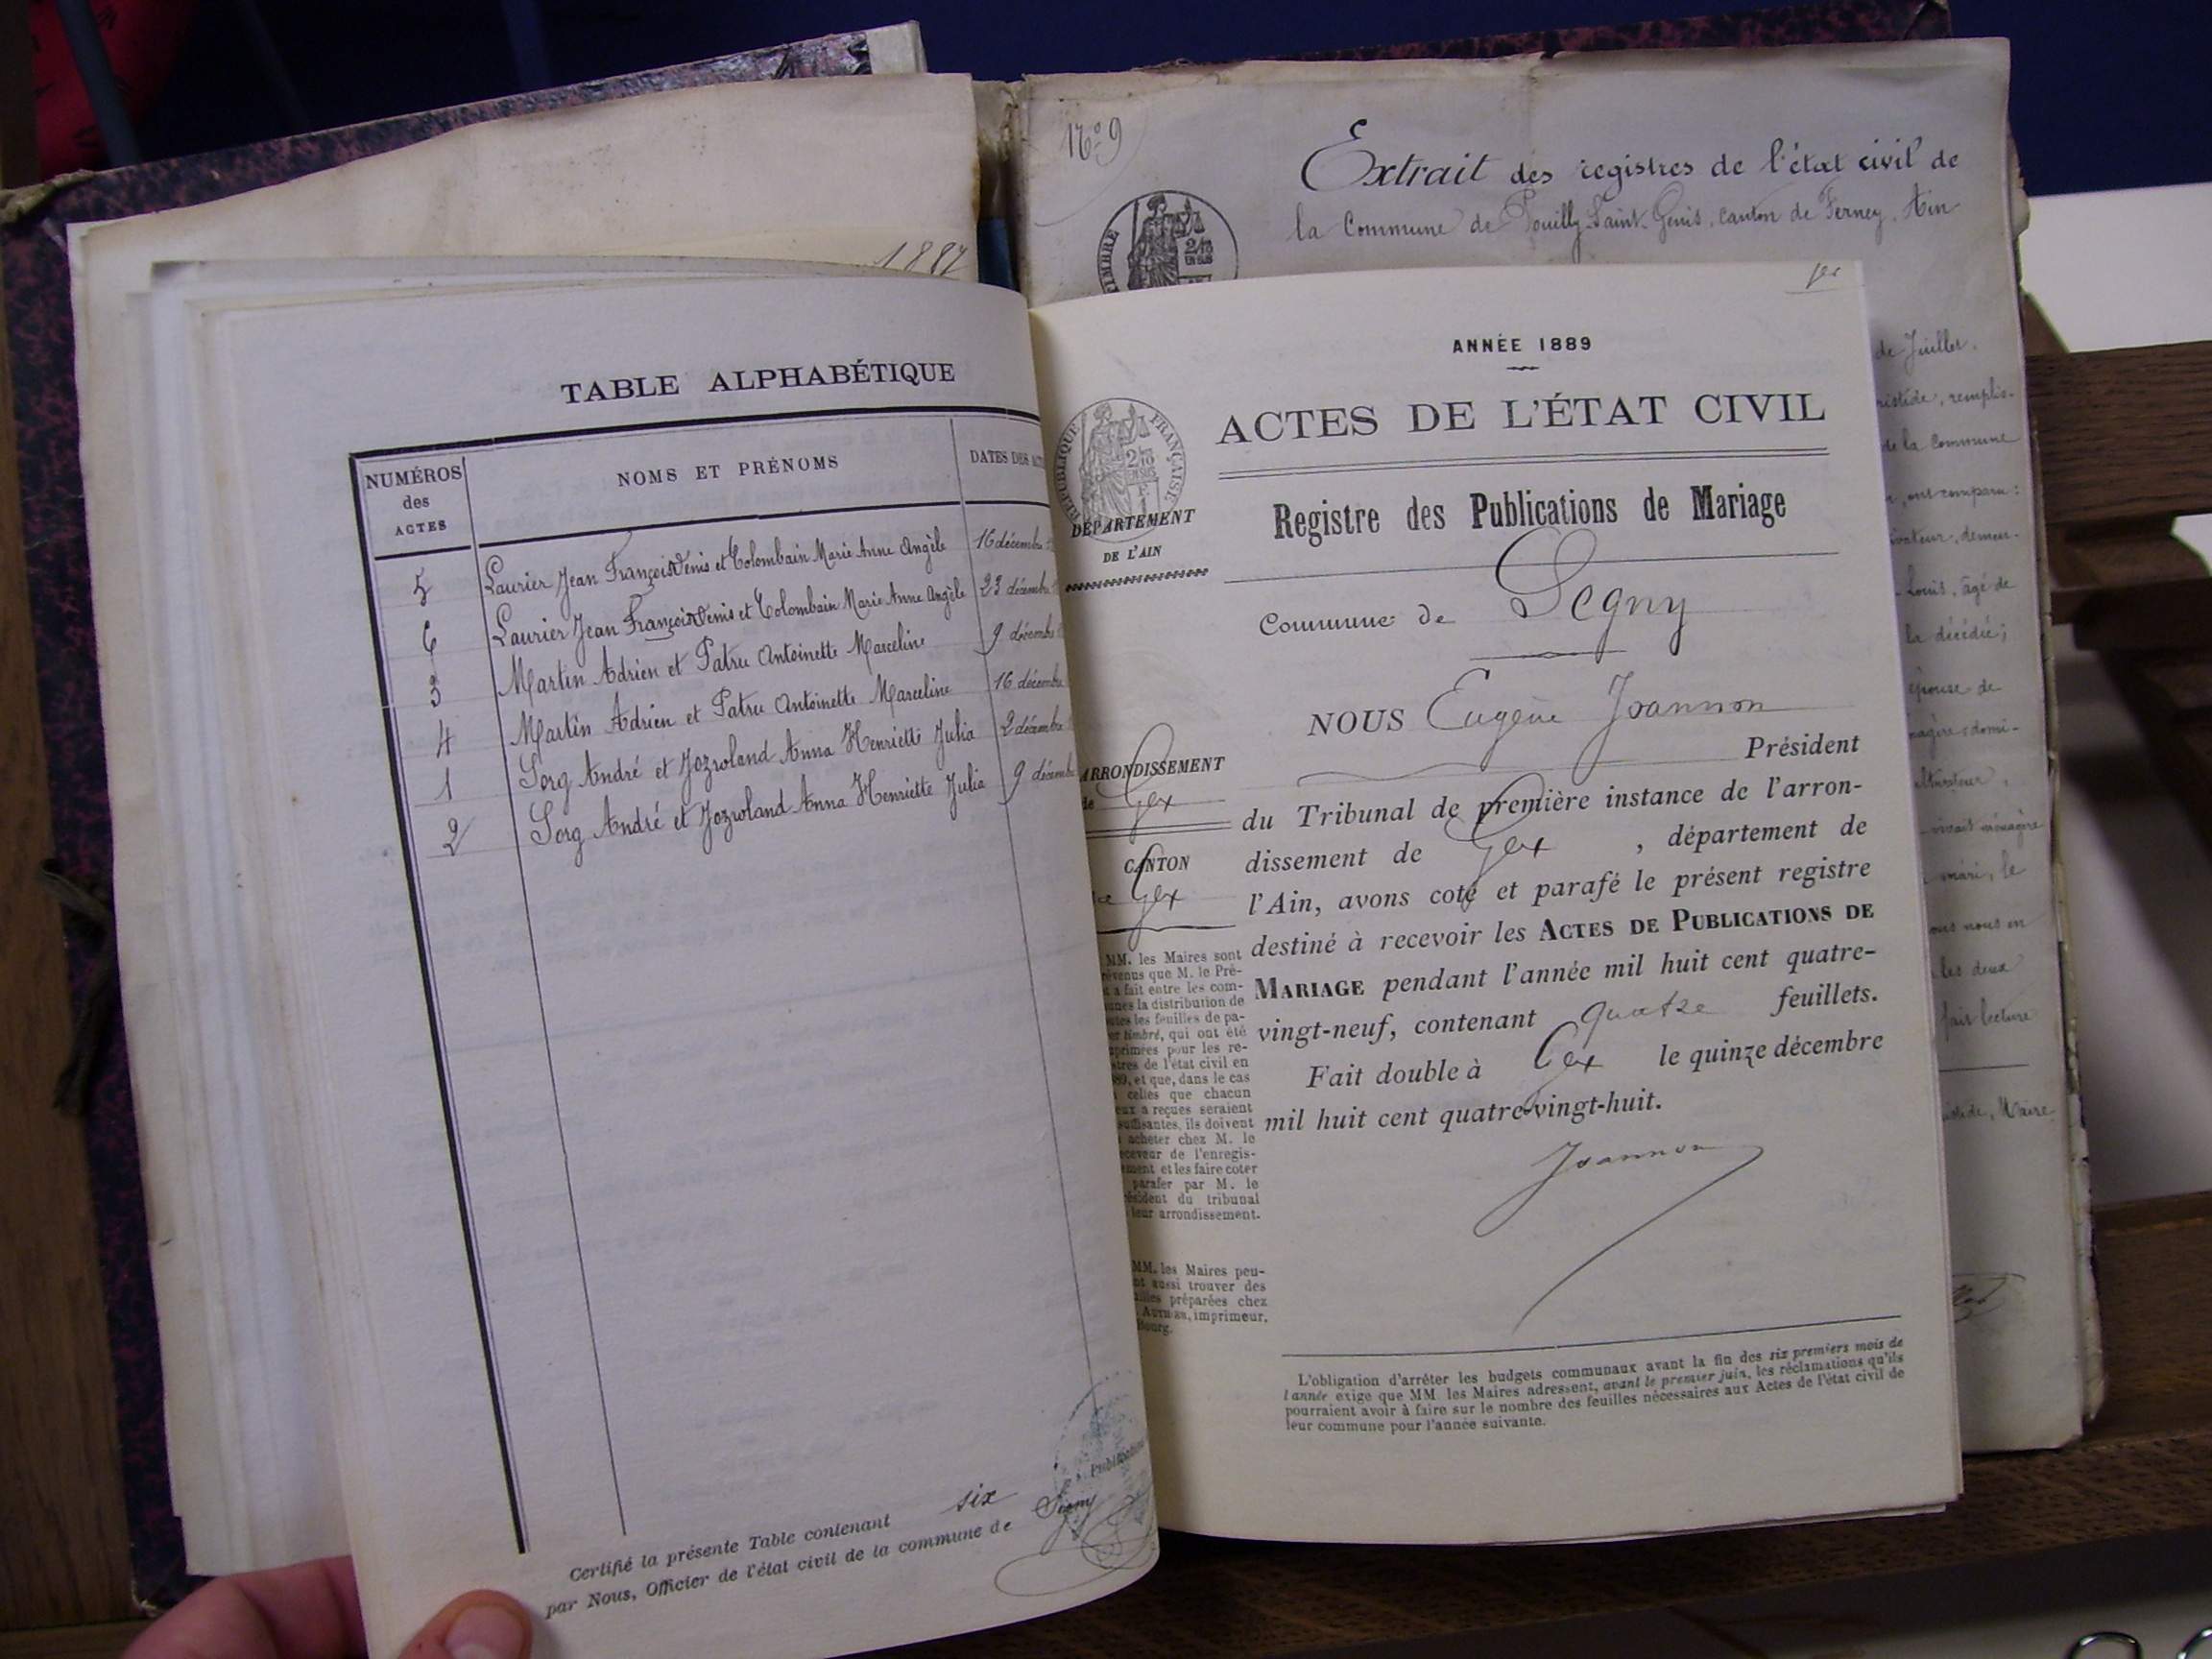 1887
TABLE ALPHABÉTIQUE
NUMÉROS
des
ACTES
NOMS ET PRÉNOMS
DATES DES
5 Laurier Jean François Denis et Colombain Marie Anne Angèle 16 décembre
6 Laurier Jean François Denis et Colombain Marie Anne Angèle 23 décembre
3 Martin Adrien et Patru Antoinette Marceline 9 décembre
4 Martin Adrien et Patru Antoinette Marceline 16 décembre
1 Sorg André et Jozroland Anna Henriette Julia 2 décembre
2 Sorg André et Jozroland Anna Henriette Julia 9 décembre
Certifié la présente Table contenant six Publications
par Nous, Officier de l'état civil de la commune de Segny
No 9
Extrait des registres de l'état civil de
la Commune de Pouilly-Saint-Genis, canton de Ferney, Ain
TIMBRE
2/10
EN SUS
ANNÉE 1889
RÉPUBLIQUE FRANÇAISE
2/10
EN SUS
ACTES DE L'ÉTAT CIVIL
Registre des Publications de Mariage
DÉPARTEMENT
DE L'AIN
Commune de Segny
NOUS Eugène Joannon
Président
ARRONDISSEMENT
de Gex
CANTON
de Gex
du Tribunal de première instance de l'arron-
dissement de Gex, département de
l'Ain, avons coté et parafé le présent registre
destiné à recevoir les ACTES DE PUBLICATIONS DE
MARIAGE pendant l'année mil huit cent quatre-
vingt-neuf, contenant quatre feuillets.
Fait double à Gex le quinze décembre
mil huit cent quatre-vingt-huit.
Joannon
MM. les Maires sont
prévenus que M. le Pré-
a fait entre les com-
la distribution de
les feuilles de pa-
timbré, qui ont été
primées pour les re-
de l'état civil en
89, et que, dans le cas
celles que chacun
eux a reçues seraient
suffisantes, ils doivent
acheter chez M. le
receveur de l'enregis-
et les faire coter
parafer par M. le
président du tribunal
leur arrondissement.
MM. les Maires peu-
aussi trouver des
préparées chez
imprimeur,
Bourg.
L'obligation d'arrêter les budgets communaux avant la fin des six premiers mois de
l'année exige que MM. les Maires adressent, avant le premier juin, les réclamations qu'ils
pourraient avoir à faire sur le nombre des feuilles nécessaires aux Actes de l'état civil de
leur commune pour l'année suivante.
de Juillet,
remplis-
de la Commune
ont comparu :
demeu-
Louis, âgé de
la décédée ;
épouse de
domi-
ménagère
mari, le
nous en
les deux
fait lecture
Maire